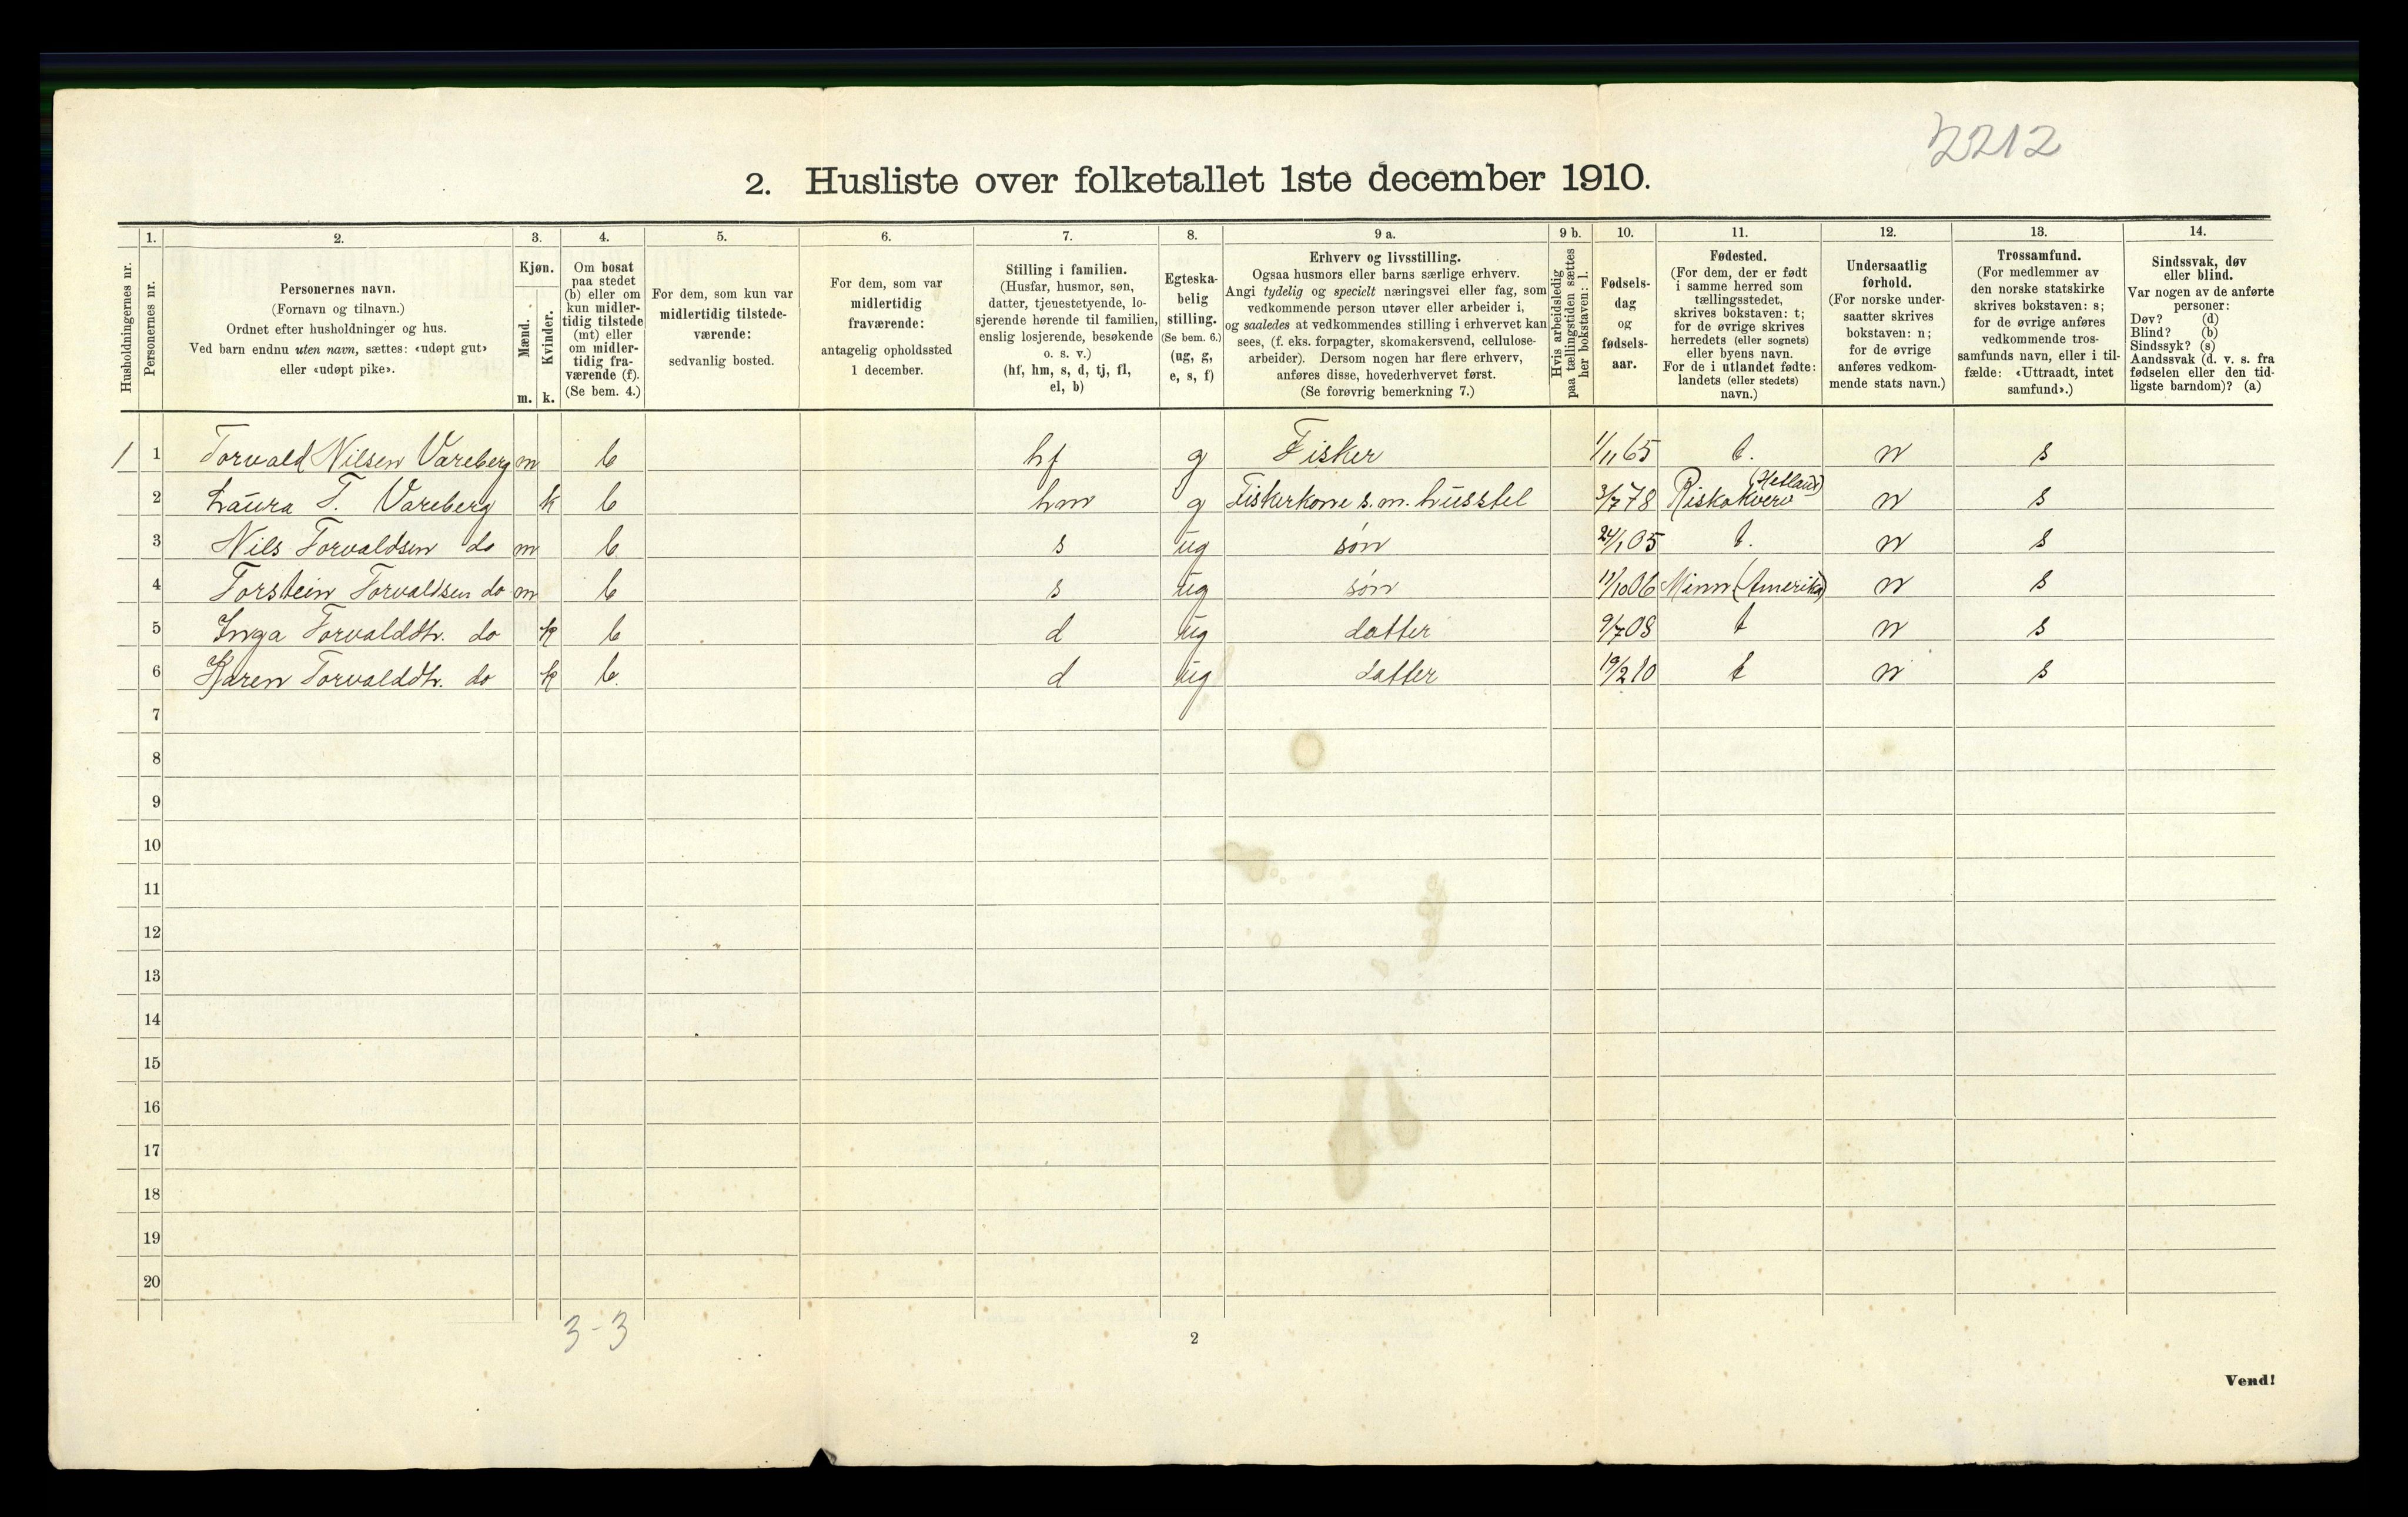 2212
2. Husliste over folketallet 1ste december 1910.
Husholdningernes nr.
1.
Personernes nr.
2.
Personernes navn.
(Fornavn og tilnavn.)
Ordnet efter husholdninger og hus.
Ved barn endnu uten navn, sættes: «udøpt gut»
eller «udøpt pike».
3.
Kjøn.
Mænd.
m.
Kvinder.
k.
4.
Om bosat
paa stedet
(b) eller om
kun midler-
tidig tilstede
(mt) eller
om midler-
tidig fra-
værende (f).
(Se bem. 4.)
5.
For dem, som kun var
midlertidig tilstede-
værende:
sedvanlig bosted.
6.
For dem, som var
midlertidig
fraværende:
antagelig opholdssted
1 december.
7.
Stilling i familien.
(Husfar, husmor, søn,
datter, tjenestetyende, lo-
sjerende hørende til familien,
enslig losjerende, besøkende
o. s. v.)
(hf, hm, s, d, tj, fl,
el, b)
8.
Egteska-
belig
stilling.
(Se bem. 6.)
(ug, g,
e, s, f)
9 a.
Erhverv og livsstilling.
Ogsaa husmors eller barns særlige erhverv.
Angi tydelig og specielt næringsvei eller fag, som
vedkommende person utøver eller arbeider i,
og saaledes at vedkommendes stilling i erhvervet kan
sees, (f. eks. forpagter, skomakersvend, cellulose-
arbeider). Dersom nogen har flere erhverv,
anføres disse, hovederhvervet først.
(Se forøvrig bemerkning 7.)
9 b.
Hvis arbeidsledig
paa tællingstiden sættes
her bokstaven: l.
10.
Fødsels-
dag
og
fødsels-
aar.
11.
Fødested.
(For dem, der er født
i samme herred som
tællingsstedet,
skrives bokstaven: t;
for de øvrige skrives
herredets (eller sognets)
eller byens navn.
For de i utlandet fødte:
landets (eller stedets)
navn.)
12.
Undersaatlig
forhold.
(For norske under-
saatter skrives
bokstaven: n;
for de øvrige
anføres vedkom-
mende stats navn.)
13.
Trossamfund.
(For medlemmer av
den norske statskirke
skrives bokstaven: s;
for de øvrige anføres
vedkommende tros-
samfunds navn, eller i til-
fælde: «Uttraadt, intet
samfund».)
14.
Sindssvak, døv
eller blind.
Var nogen av de anførte
personer:
Døv? (d)
Blind? (b)
Sindssyk? (s)
Aandssvak (d. v. s. fra
fødselen eller den tid-
ligste barndom)? (a)
1 1 Torvald Nilsen Vareberg m b hf g Fisker 1/11 65 t. n s
2 Laura T. Vareberg k b hm g Fiskerkone s.m. husstel 3/7 78 Riskekverv (Hetland) n s
3 Nils Torvaldsen do m b s ug søn 24/1 05 t. n s
4 Torstein Torvaldsen do m b s ug søn 11/10 06 Minn (Amerika) n s
5 Inga Torvalddtr. do k b d ug datter 9/7 08 t n s
6 Karen Torvalddtr. do k b. d ug datter 19/2 10 t n s
7
8
9
10
11
12
13
14
15
16
17
18
19
20
3-3
2
Vend!